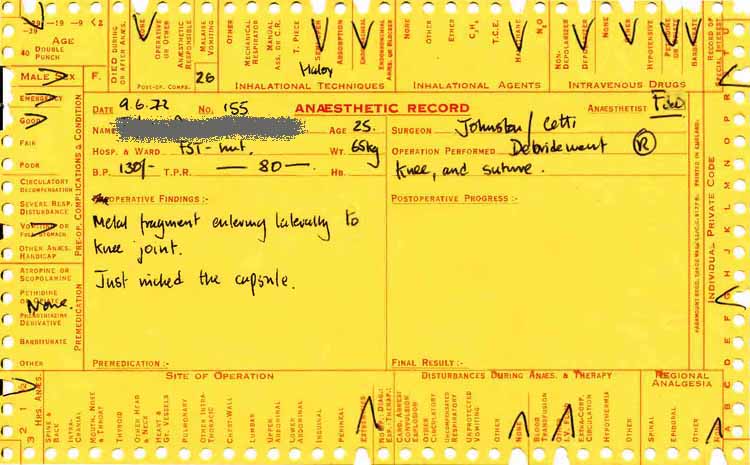 -19 -9 <2
-39
AGE
40 DOUBLE PUNCH
MALE SEX F.
DIED DURING OR AFTER ANÆS.
NONE
OPERATIVE OR OTHER
ANÆSTHETIC RESPONSIBLE
MALAISE VOMITING
OTHER
POST-OP. COMPS.
26
MECHANICAL RESPIRATOR
MANUAL ASS. OR C.R.
T. PIECE
ABSORPTION
INHALATIONAL TECHNIQUES
OTHER
ETHER
C₃H₆
T.C.E.
N₂O
INHALATIONAL AGENTS
NON-DEPOLARIZER
DEPOLARIZER
OTHER
HYPOTENSIVE
INTRAVENOUS DRUGS
RECORD OF SPECIAL INTEREST
EMERGENCY
GOOD
FAIR
POOR
CIRCULATORY DECOMPENSATION
SEVERE RESP. DISTURBANCE
VOMITING OR FULL STOMACH
OTHER ANÆS. HANDICAP
PRE-OP. COMPLICATIONS & CONDITION
ATROPINE OR SCOPOLAMINE
PETHIDINE OR OPIATE
None.
PHENOTHIAZINE DERIVATIVE
BARBITURATE
OTHER
PREMEDICATION
DATE 9.6.72 NO. 155 ANÆSTHETIC RECORD ANÆSTHETIST
NAME AGE 25.
HOSP. & WARD FST - hut. WT. 65kg
B.P. 130/- T.P.R. — 80 — HB.
SURGEON Johnston / Cetti
OPERATION PERFORMED Debridement (R)
knee, and suture.
OPERATIVE FINDINGS :-
Metal fragment entering laterally to
knee joint.
Just nicked the capsule.
POSTOPERATIVE PROGRESS :-
PREMEDICATION :-
FINAL RESULT :-
INDIVIDUAL PRIVATE CODE
PRINTED IN ENGLAND.
3 2 1 HRS. ANÆS.
SITE OF OPERATION
SPINE & BACK
INTRA-CRANIAL
MOUTH, NOSE & THROAT
THYROID
OTHER HEAD & NECK
HEART & GT. VESSELS
PULMONARY
OTHER INTRA-THORACIC
CHEST-WALL
LUMBAR
UPPER ABDOMINAL
LOWER ABDOMINAL
INGUINAL
PERINEAL
EXTREMITIES
DISTURBANCES DURING ANÆS. & THERAPY
CARD. ARREST
CONVULSION
EXPLOSION
OTHER CIRCULATORY
UNCOMPENSATED RESPIRATORY
UNPROTECTED VOMITING
OTHER
NONE
BLOOD TRANSFUSION
OTHER I.V. FLUID
EXTRA-CORP. CIRCULATION
HYPOTHERMIA
OTHER
REGIONAL ANALGESIA
SPINAL
EPIDURAL
OTHER